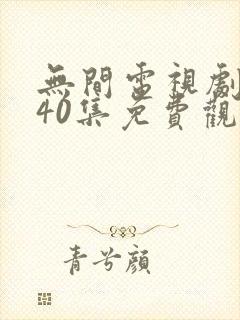 無間電視劇
40集免費觀
青兮顔